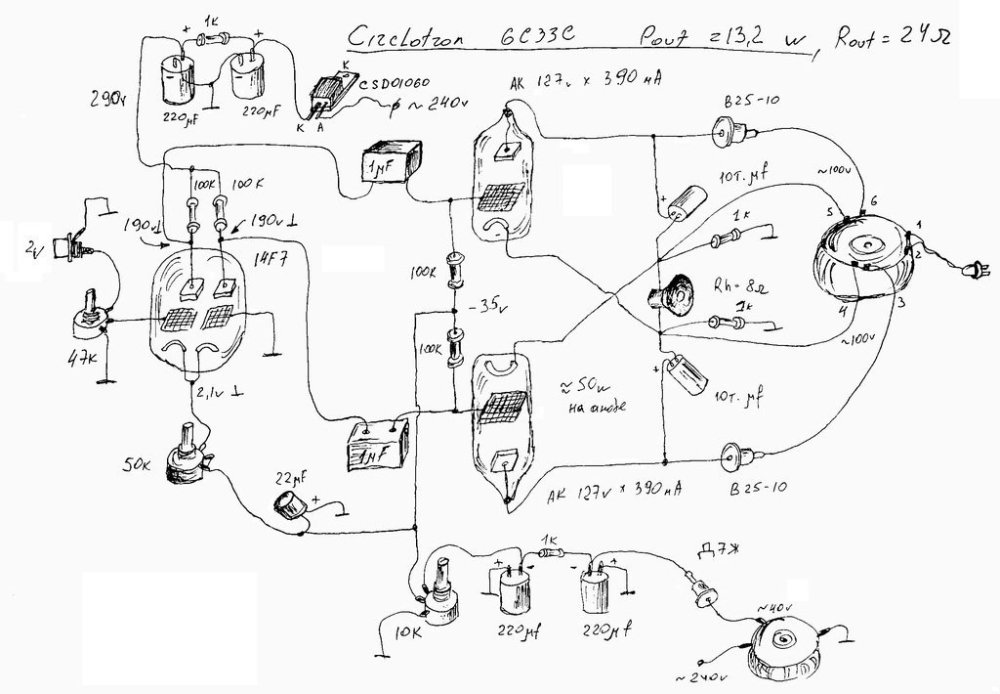 Circlotron 6C33C Pout = 13,2 w, Rout = 24Ω
1K
+
+
K
CSD01060
220μF
220μF
K A
~ 240v
290v
AK 127v x 390 мА
B25-10
1μF
10т. μf
+
~100v
6
5
1
2
100K
100K
190v⊥
190v⊥
1K
2v
14F7
100K
-35v
Rh = 8Ω
1K
4
3
47K
100K
~100v
2,1v ⊥
≈ 50w
на аноде
+
10т. μf
50K
1μF
22μF
+
AK 127v x 390мА
B25-10
1K
Д7Ж
+
-
-
+
10K
220μf
220μf
~40v
~240v